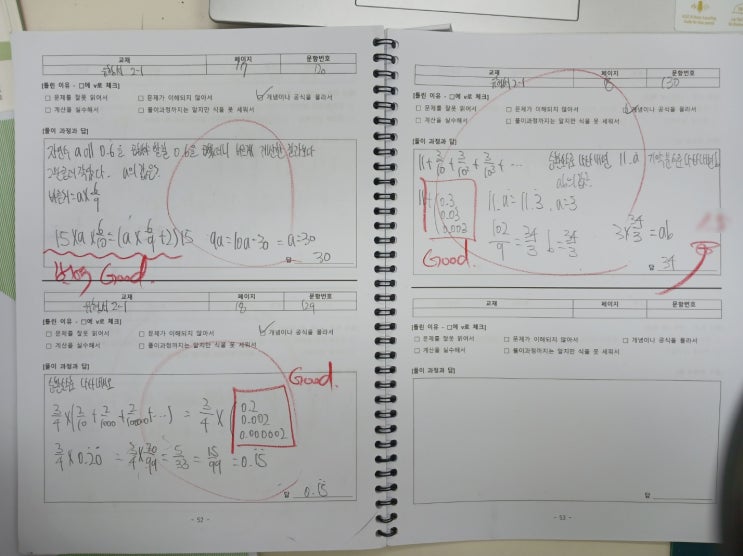 교재 페이지 문항번호
유형서 2-1 17 120
[틀린 이유 - □에 v로 체크]
□ 문제를 잘못 읽어서 □ 문제가 이해되지 않아서 □ 개념이나 공식을 몰라서
□ 계산을 실수해서 □ 풀이과정까지는 알지만 식을 못 세워서
[풀이 과정과 답]
자연수 a에 0.6을
a의 값은?
15×a×6/10=(a×6/9+2)15 9a=10a-30 = a=30
답 30
Good.
교재 페이지 문항번호
유형서 2-1 18 129
[틀린 이유 - □에 v로 체크]
□ 문제를 잘못 읽어서 □ 문제가 이해되지 않아서 □ 개념이나 공식을 몰라서
□ 계산을 실수해서 □ 풀이과정까지는 알지만 식을 못 세워서
[풀이 과정과 답]
Good.
순환소수로 나타내어라
3/4×(2/10+2/1000+2/100000+…) = 3/4×
0.2
0.002
0.000002
3/4×0.20 = 3/4×20/99 = 5/33 = 15/99 = 0.15
답 0.15
- 52 -
교재 페이지 문항번호
유형서 2-1 18 130
[틀린 이유 - □에 v로 체크]
□ 문제를 잘못 읽어서 □ 문제가 이해되지 않아서 □ 개념이나 공식을 몰라서
□ 계산을 실수해서 □ 풀이과정까지는 알지만 식을 못 세워서
[풀이 과정과 답]
11+3/10+3/10²+3/10³+… 순환소수로 나타내면 11.a 기약분수로 나타내면 b
ab의 값은?
11+
0.3
0.03
0.003
11.a=11.3 a=3
102/9=34/3 b=34/3 3×34/3=ab
Good.
답 34
교재 페이지 문항번호
[틀린 이유 - □에 v로 체크]
□ 문제를 잘못 읽어서 □ 문제가 이해되지 않아서 □ 개념이나 공식을 몰라서
□ 계산을 실수해서 □ 풀이과정까지는 알지만 식을 못 세워서
[풀이 과정과 답]
답
- 53 -